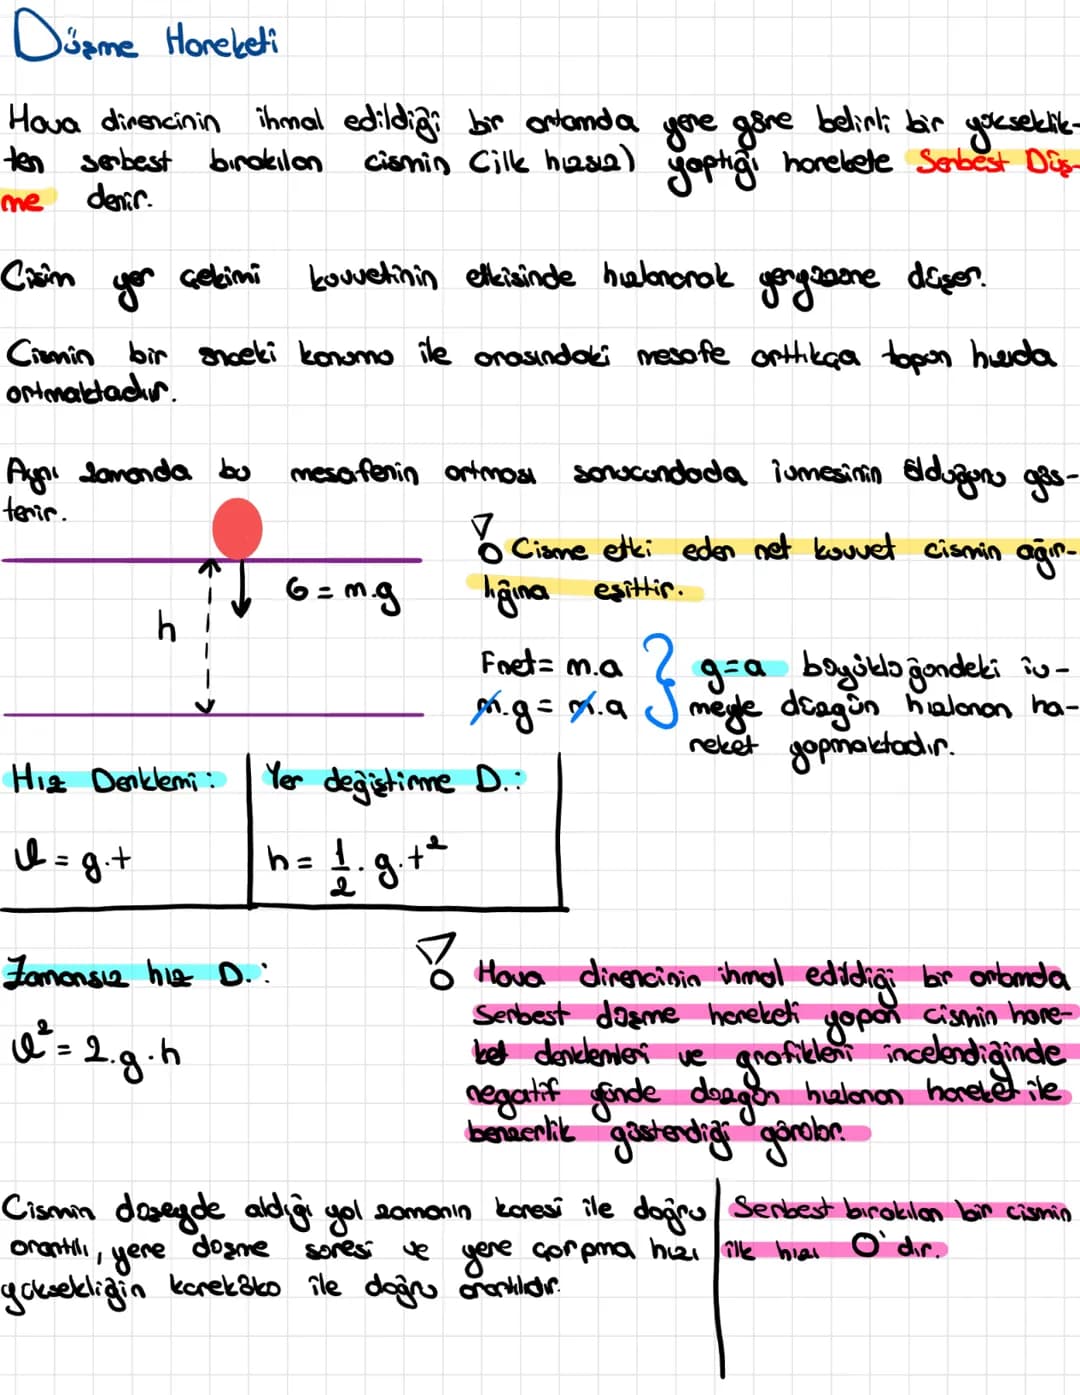 Düşme Hareketi
Hava direncinin ihmal edildiği bir ortamda yere göre belirli bir yükseklik-
ten serbest bırakılan cismin (ilk hızsız) yaptığı harekete Serbest Düş-
me denir.
Cisim yer çekimi kuvvetinin etkisinde hızlanarak yeryüzüne düşer.
Cismin bir önceki konumu ile arasındaki mesafe arttıkça topun hızıda
artmaktadır.
Aynı zamanda bu mesafenin artması sonucundada ivmesinin olduğunu gös-
terir.
! Cisme etki eden net kuvvet cismin ağır-
lığına eşittir.
G = m.g
h
Fnet = m.a
m.g = m.a
} g=a büyüklüğündeki iv-
meyle düzgün hızlanan ha-
reket yapmaktadır.
Hız Denklemi:
v = g.t
Yer değiştirme D.:
h = 1/2 . g.t²
Zamansız hız D.:
v² = 2.g.h
! Hava direncinin ihmal edildiği bir ortamda
Serbest düşme hareketi yapan cismin hare-
ket denklemleri ve grafikleri incelendiğinde
negatif yönde düzgün hızlanan hareket ile
benzerlik gösterdiği görülür.
Cismin düşeyde aldığı yol zamanın karesi ile doğru
orantılı, yere düşme süresi ve yere çarpma hızı
yüksekliğin karekökü ile doğru orantılıdır.
Serbest bırakılan bir cismin
ilk hızı 0'dır.